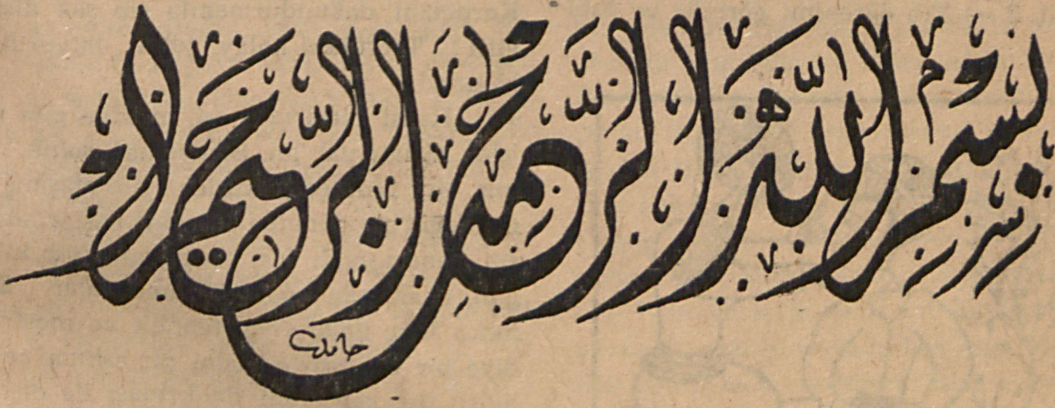 بِسْمِ اللهِ الرَّحْمٰنِ الرَّحِيمِ
حامد